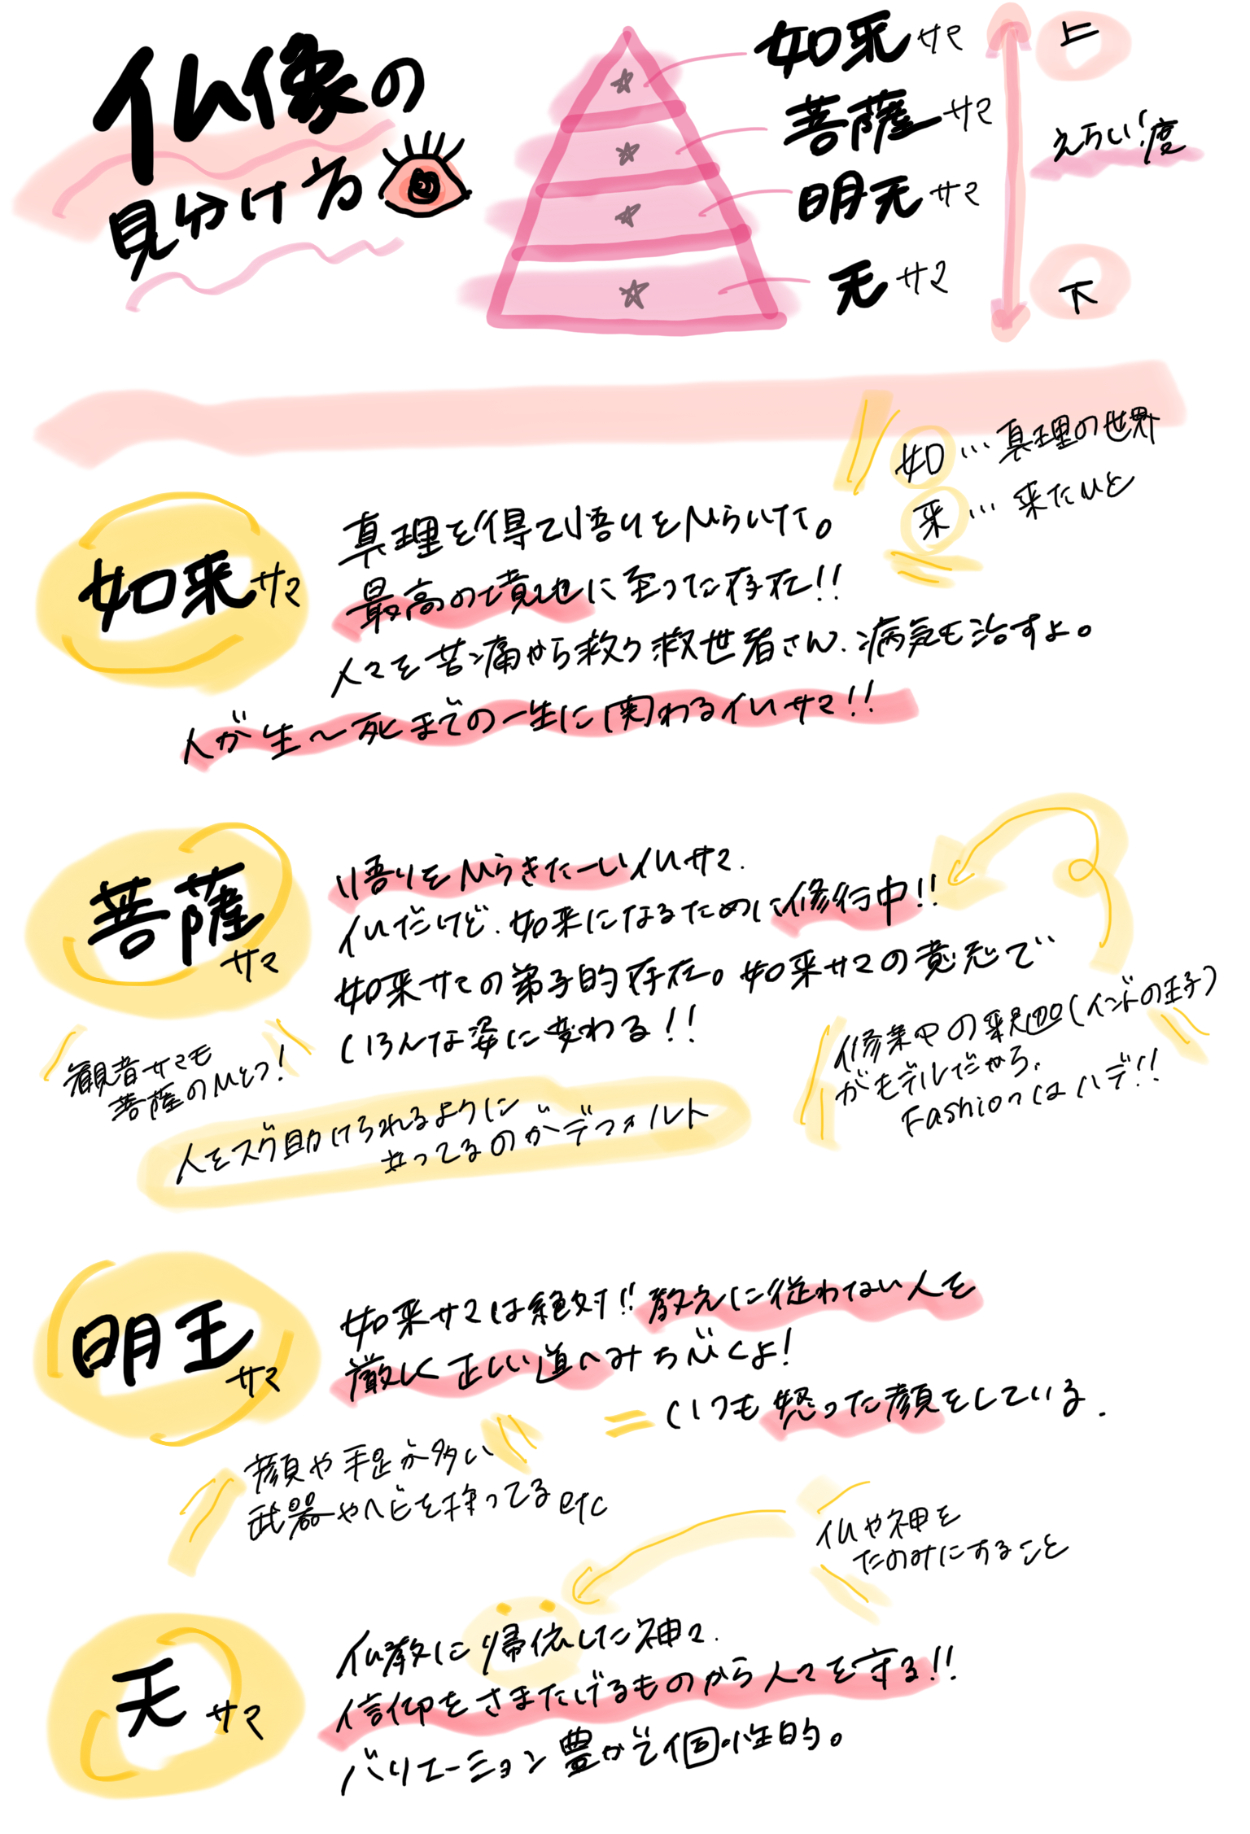 仏像の
見分け方
如来サマ
菩薩サマ
明天サマ
天サマ
上
えらい度
下
如…真理の世界
来…来たひと
如来サマ
真理を得て悟りをひらいた。
最高の境地に至った存在!!
人々を苦痛から救う救世者さん、病気も治すよ。
人が生〜死までの一生に関わる仏サマ!!
菩薩サマ
悟りをひらきたーい仏サマ、
仏だけど、如来になるために修行中!!
如来サマの弟子的存在。如来サマの意志で
いろんな姿に変わる!!
観音サマも
菩薩のひとつ!
修業中の釈迦(インドの王子)
がモデルだから、
Fashionはハデ!!
人をスグ助けられるように
立ってるのがデフォルト
明王サマ
如来サマは絶対!!教えに従わない人を
厳しく正しい道へみちびくよ!
=いつも怒った顔をしている、
顔や手足が多い
武器やヘビを持ってるetc
仏や神を
たのみにすること
天サマ
仏教に帰依した神々、
信仰をさまたげるものから人々を守る!!
バリエーション豊かで個性的。